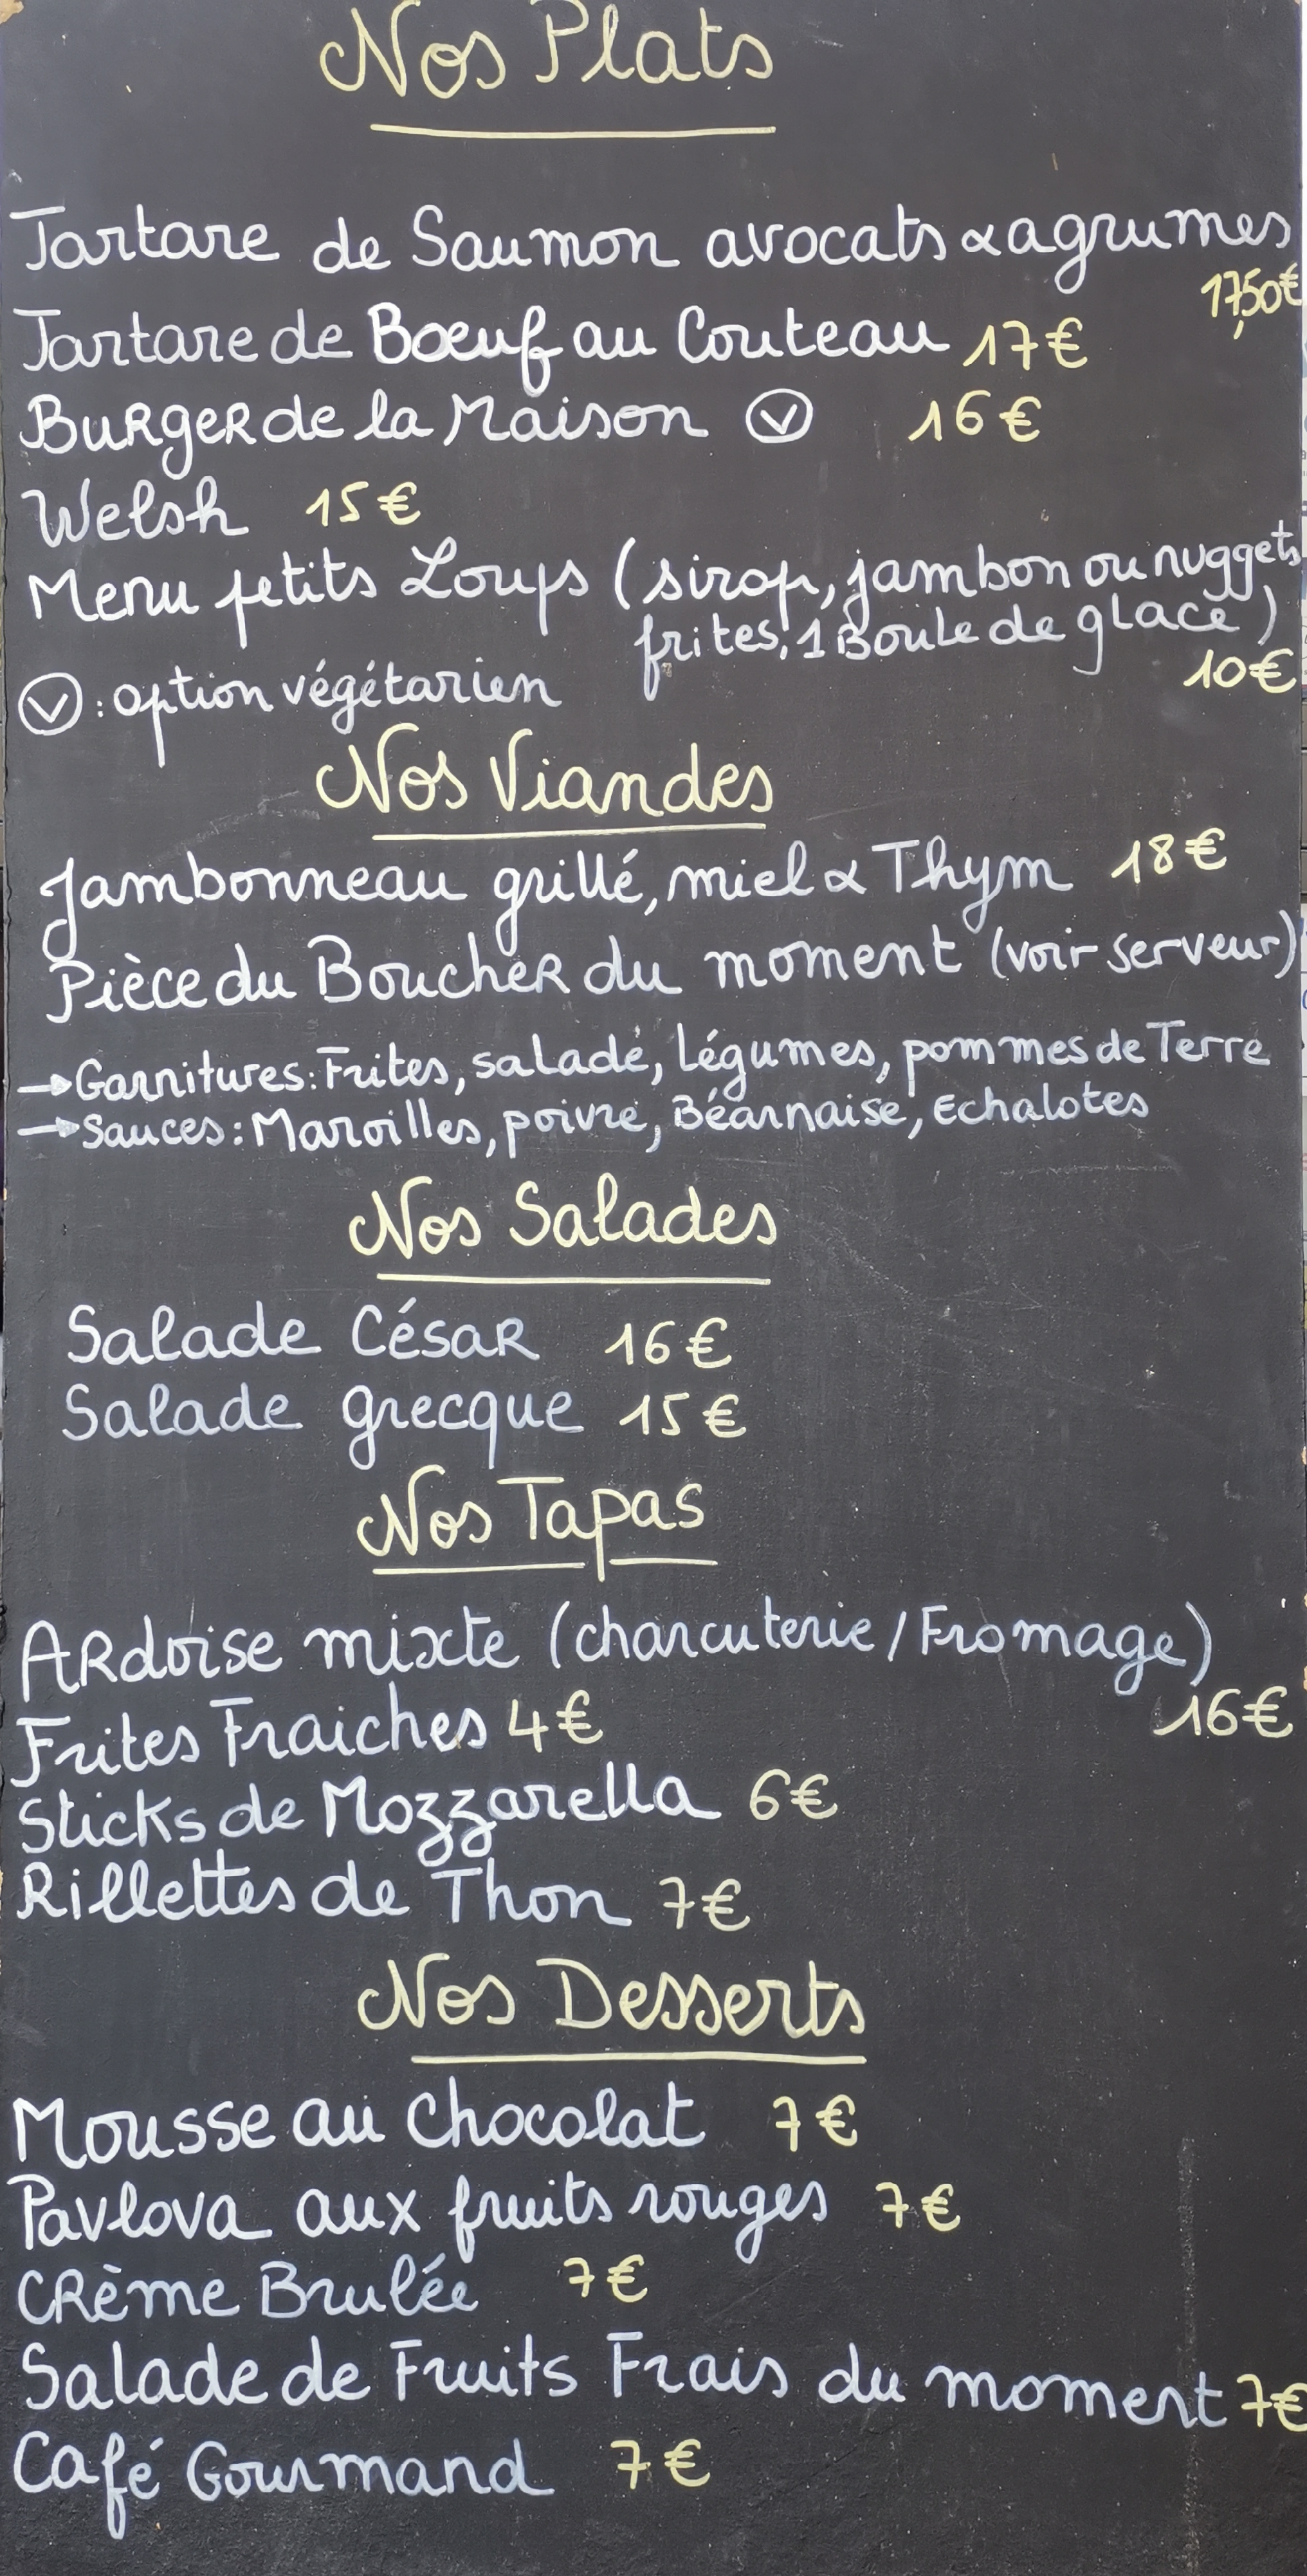 Nos Plats
Tartare de Saumon avocats & agrumes
17,50€
Tartare de Bœuf au Couteau 17€
BuRgeR de la Maison Ⓥ 16€
Welsh 15€
Menu petits Loups (sirop, jambon ou nuggets
frites, 1 Boule de glace)
10€
Ⓥ : option végétarien
Nos Viandes
Jambonneau grillé, miel & Thym 18€
Pièce du BoucheR du moment (voir serveur)
→ Garnitures : Frites, salade, légumes, pommes de Terre
→ Sauces : Maroilles, poivre, Béarnaise, Echalotes
Nos Salades
Salade César 16€
Salade grecque 15€
Nos Tapas
ARdoise mixte (charcuterie / Fromage)
16€
Frites Fraiches 4€
Sticks de Mozzarella 6€
Rillettes de Thon 7€
Nos Desserts
Mousse au Chocolat 7€
Pavlova aux fruits rouges 7€
CRème Brulée 7€
Salade de Fruits Frais du moment 7€
Café Gourmand 7€